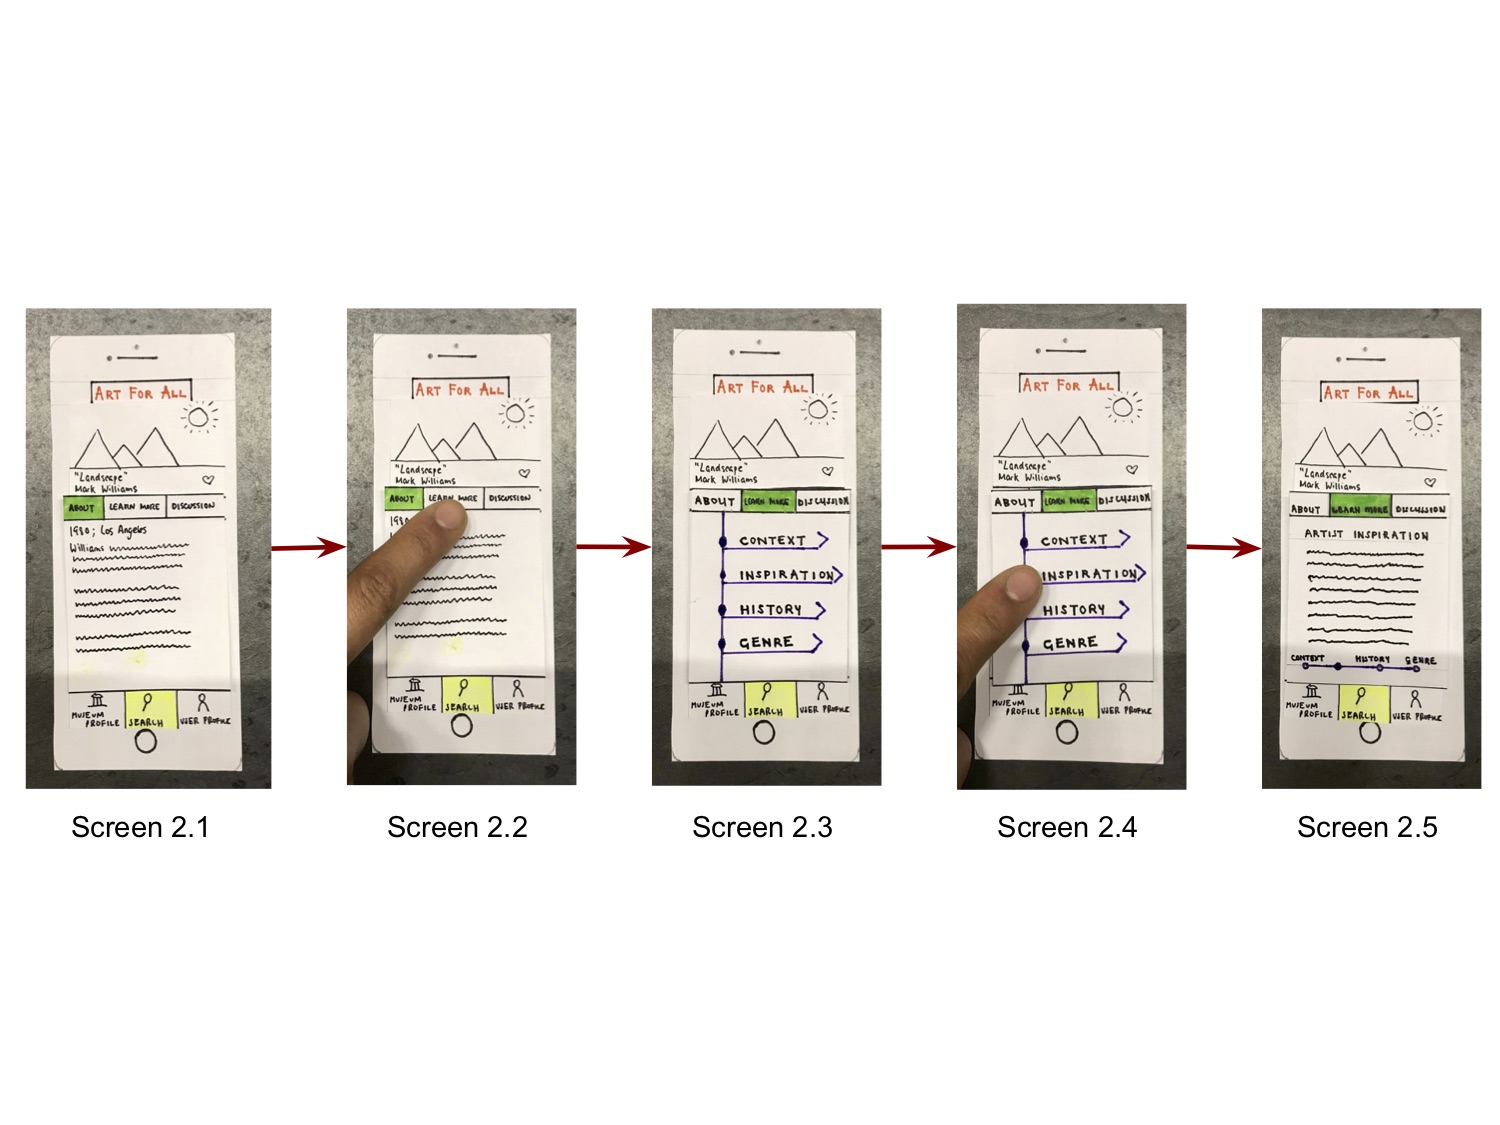 ART FOR ALL
"Landscape"
Mark Williams
ABOUT LEARN MORE DISCUSSION
1980; Los Angeles
Williams
MUSEUM PROFILE SEARCH USER PROFILE
Screen 2.1
ART FOR ALL
"Landscape"
Mark Williams
ABOUT LEARN MORE DISCUSSION
MUSEUM PROFILE SEARCH USER PROFILE
Screen 2.2
ART FOR ALL
"Landscape"
Mark Williams
ABOUT LEARN MORE DISCUSSION
CONTEXT
INSPIRATION
HISTORY
GENRE
MUSEUM PROFILE SEARCH USER PROFILE
Screen 2.3
ART FOR ALL
"Landscape"
Mark Williams
ABOUT LEARN MORE DISCUSSION
CONTEXT
INSPIRATION
HISTORY
GENRE
MUSEUM PROFILE SEARCH USER PROFILE
Screen 2.4
ART FOR ALL
"Landscape"
Mark Williams
ABOUT LEARN MORE DISCUSSION
ARTIST INSPIRATION
CONTEXT HISTORY GENRE
MUSEUM PROFILE SEARCH USER PROFILE
Screen 2.5